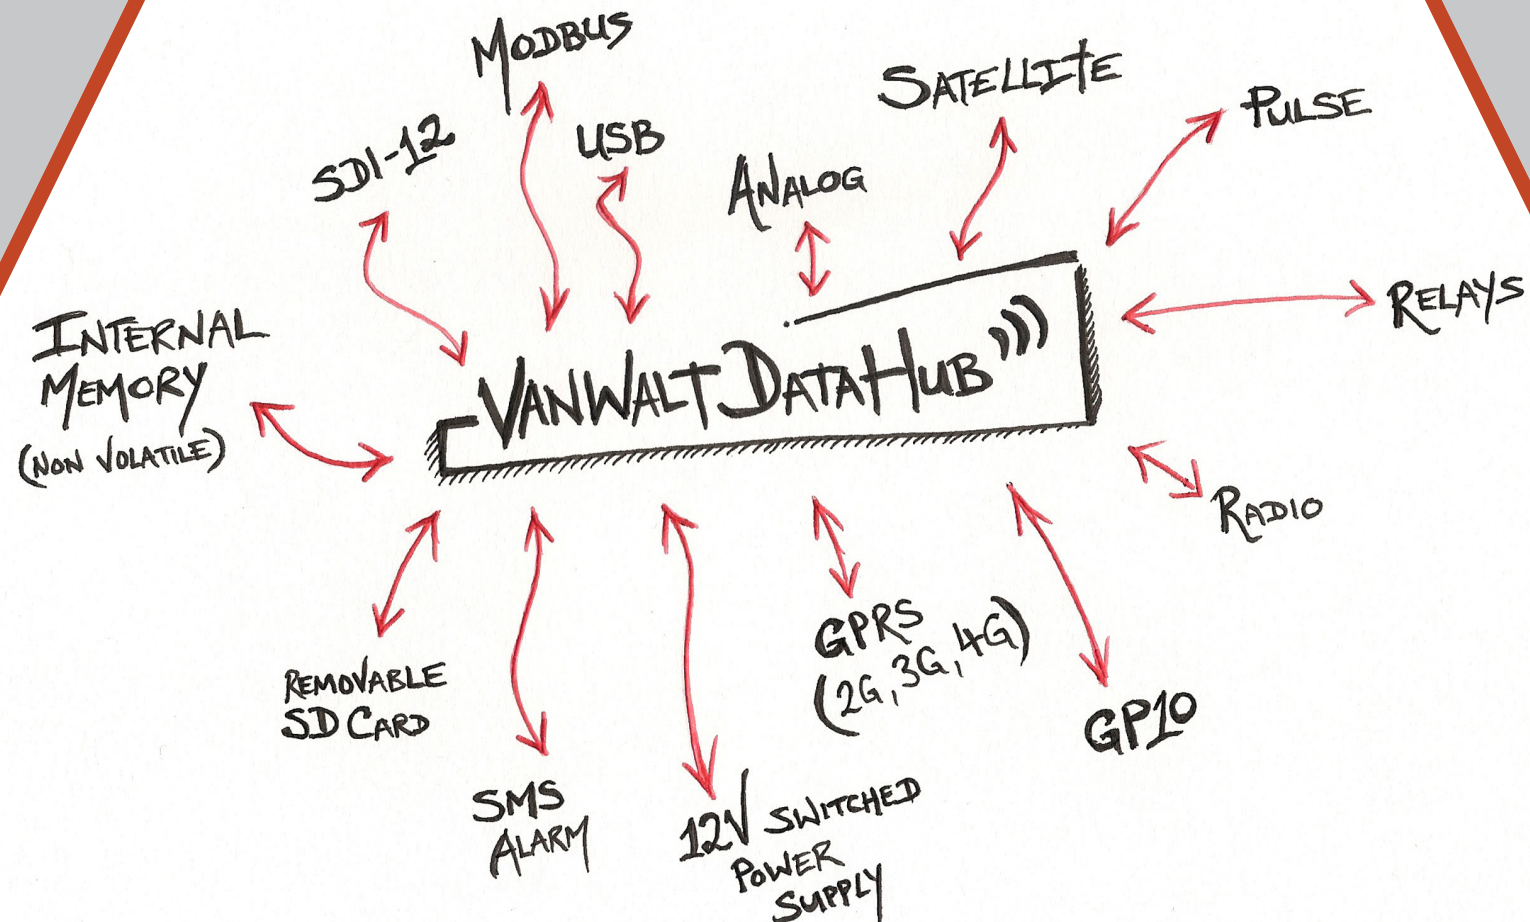 MODBUS
SATELLITE
PULSE
SDI-12
USB
ANALOG
RELAYS
INTERNAL
MEMORY
(NON VOLATILE)
VANWALT DATAHUB
RADIO
GPRS
(2G, 3G, 4G)
REMOVABLE
SD CARD
GP10
SMS
ALARM
12V SWITCHED
POWER
SUPPLY